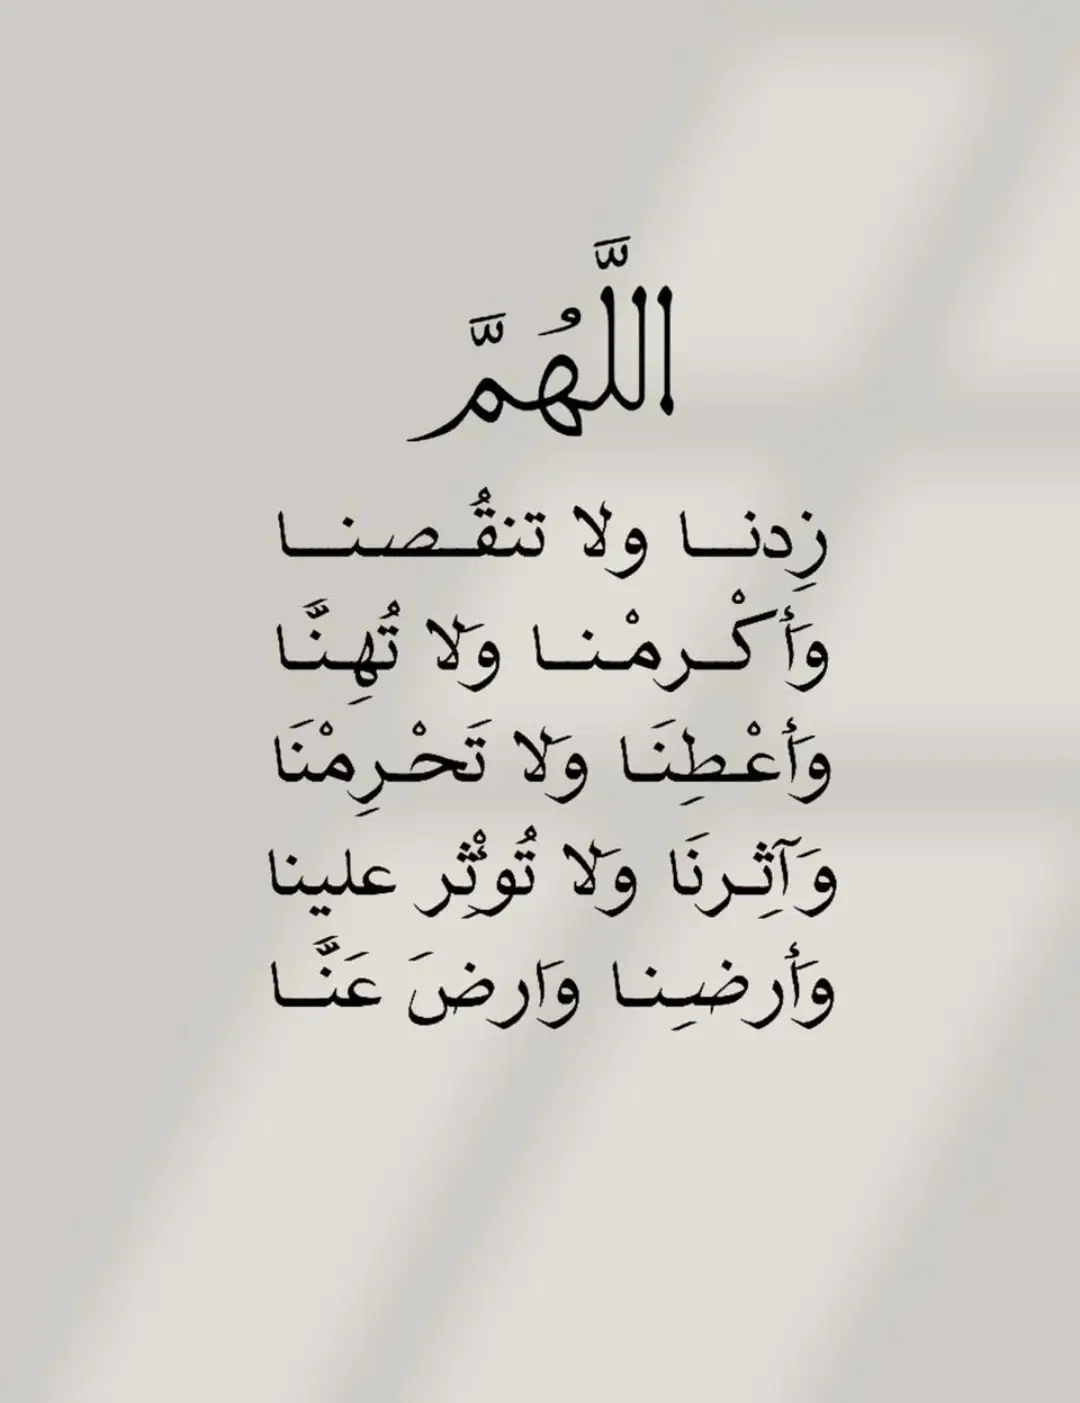 اللَّهُمَّ
زِدنا ولا تنقُصنا
وَأَكْرمْنا وَلَا تُهِنَّا
وَأَعْطِنَا وَلَا تَحْرِمْنَا
وَآثِرنَا وَلَا تُوْثِر علينا
وَأَرضِنا وَارضَ عَنَّا